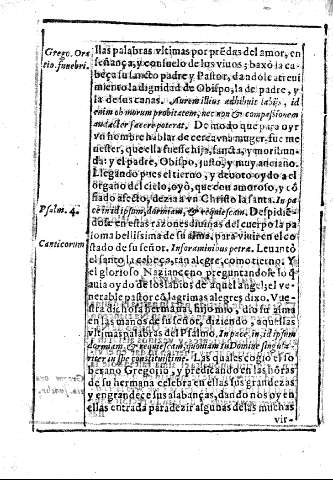 Grego. Ora
tio. funebri.
llas palabras vltimas por prẽdas del amor, en
señança, y consuelo de los viuos; baxò la ca-
beça su sancto padre y Pastor, dandole atreui
miento la dignidad de Obispo, la de padre, y
la de sus canas. Aurem illius adhibuit labijs, id
enim ob morum probitatem, nec non & compassionem
audacter facere poterat. De modo que para oyr
vn hombre hablar de cerca vna muger, fue me
nester, que ella fuesse hija, sancta, y moribun-
da: y el padre, Obispo, justo, y muy anciano.
Llegando pues el tierno, y deuoto oydo a el
organo del cielo, oyò, que con amoroso, y cõ
fiado afecto, dezia a vn Christo la santa. In pa
Psalm. 4.
ce in id ipsum, dormiam, & requiescam. Despidiẽ-
dose en estas razones diuinas del cuerpo la pa
loma bellissima de su alma, para viuir en el co
Canticorum
stado de su señor. In foraminibus petræ. Leuantò
el santo la cabeça, tan alegre, como tierno. Y
el glorioso Nazianceno preguntandole lo q̃
auia oydo de los labios de aquel angel, el ve-
nerable pastor cõ lagrimas alegres dixo. Vue-
stra dichosa hermana, hijo mio, dio su alma
en las manos de su señor, diziendo, aquellas
vltimas palabras del Psalmo. In pace in id ipsum
dormiam, & requiescam, quoniam tu Domine singula
riter in spe constituisti me. Las quales cogio el so
berano Gregorio, y predicando en las hõras
de su hermana celebra en ellas sus grandezas
y engrandece sus alabanças, dando nos oy en
ellas entrada para dezir algunas de las muchas
vir-